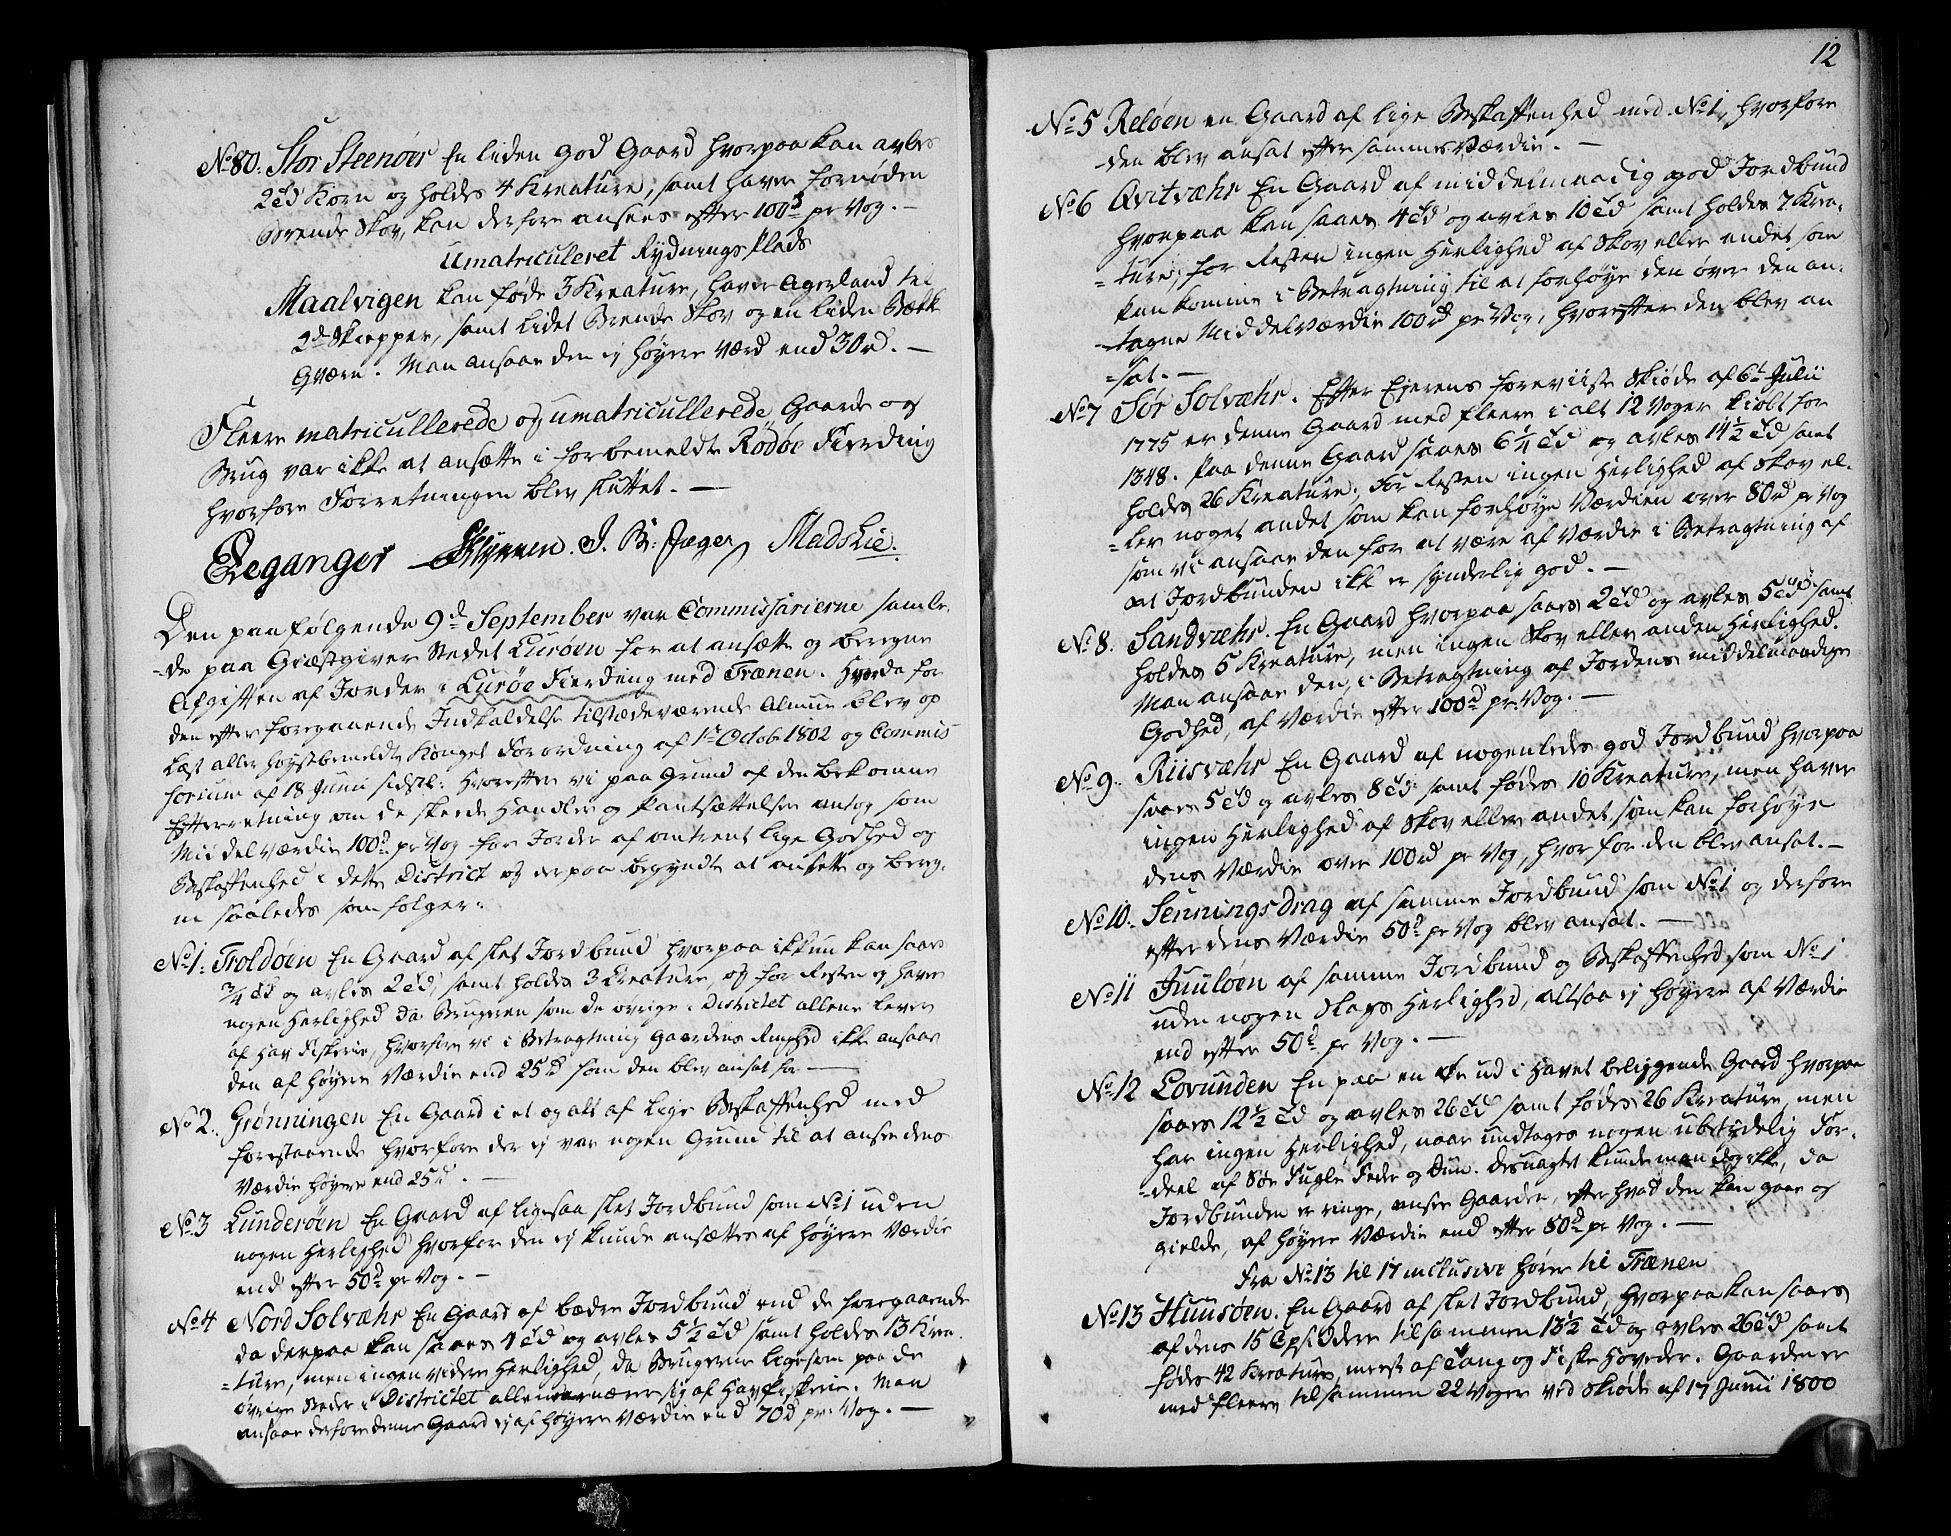 No 80. Stor Steenøer En liden god Gaard hvorpaa kan avles
2 Td Korn og holdes 4 Kreature, samt haver fornøden
Brende Skov, kan derfore ansees efter 100 d pr Vog. —
Umatriculeret Rydnings Plads
Maalvigen kan føde 3 Kreature, haver Agerland til
2de Skiepper, samt lidet Brende Skov og en liden Bæk
Qværn. Man ansaae den ej høyere værd end 30 rd. —
Fleere matricullerede og umatricullerede Gaarde og
Brug var ikke at ansætte i forbemeldte Rödöe Fierding
hvorfore Forretningen blev sluttet. —
J. B: Jæger, Mads Lie.
Den paafølgende 9d September var Commissarierne samle,
-de paa Giæstgiver Stedet Lurøen for at ansætte og beregne
Afgiften af Jorder i Lurøe Fierding med Trænen. Hvorda for
den efter foregaaende Indkaldelse tilstædeværende Almue blev op
læst aller høystbemeldte Kongel Forordning af 1te Octob 1802 og Commis
sorium af 18 Junii sidstl: Hvorefter vi paa Grund af den bekomne
Efterretning om de skeede Handler og Pantsættelser antog som
Middelværdie 100 d pr Vog for Jorder af omtrent lige Godhed og
Beskaffenhed i dette District og derpaa begyndte at ansætte og bereg,
ne saaledes som følger:
No 1: Troldøen En Gaard af slet Jordbund hvorpaa ikkun kan saaes
3/4 Td og avles 2 Td, samt holdes 3 Kreature, og for Resten ej haver
nogen Herlighed da Brugeren som de øvrige i Districtet allene lever
af Hav Fiskerie, hvorfore vi i Betragtning Gaardens Ringhed ikke ansaae
den af høyere Værdie end 25 rd som den blev ansat for —
No 2. Grønningen En Gaard i et og alt af lige Beskaffenhed med
forestaaende hvorfore der ej var nogen Grund til at ansee dens
Værdie høyere end 25 d. —
No 3 Lunderøen En Gaard af ligesaa slet Jordbund som No 1 uden
nogen Herlighed hvorfor den ej kunde ansættes af høyere Værdie
end efter 50 d pr Vog. —
No 4 Nord Solvæhr En Gaard af bædre Jordbund end de foregaaende
da derpaa kan saaes 4 Td og avles 5 1/2 Td samt holdes 13 Krea,
-ture, men ingen videre Herlighed, da Brugerne ligesom paa de
øvrige Steder i Districtet allene nærer sig af Havfiskerie. Man
ansaae derfore denne Gaard ej af høyere Værdie end 70 d pr: Vog. —
12
No 5 Reløen en Gaard af lige Beskaffenhed med No 1, hvorfore
den blev ansat efter sammes Værdie. —
No 6 Qvitvæhr En Gaard af middelmaadig god Jordbund
hvorpaa kan saaes 4 Td og avles 10 Td samt holdes 7 Krea,
-ture, for Resten ingen Herlighed af Skov eller andet som
kan komme i Betragtning til at forhøye den over den an,
-tagne Middelværdie 100 rd pr Vog, hvorefter den blev an
-sat. —
No 7 Sør Solvæhr. Efter Ejerens foreviiste Skiøde af 6te Julii
1775 er denne Gaard med fleere i alt 12 Voger kiøbt for
1348. Paa denne Gaard saaes 6 1/4 Td og avles 14 1/2 Td samt
holdes 26 Kreature, For Resten ingen Herlighed af Skov el,
-ler noget andet som kan forhøye Værdien over 80 rd pr Vog
som vi ansaae den for at være af Værdie i Betragtning af
at Jordbunden ikke er synderlig god. —
No 8. Sandvæhr. En Gaard hvorpaa saaes 2 Td og avles 5 Td samt
holdes 5 Kreature, men ingen Skov eller anden Herlighed.
Man ansaae den, i Betragtning af Jordens middelmaadige
Godhed, af Værdie efter 100 d pr: Vog. —
No 9. Riisvæhr En Gaard af nogenledes god Jordbund hvorpaa
saaes 5 Td og avles 8 Td samt fødes 10 Kreature, men haver
ingen Herlighed af Skov eller andet, som kan forhøye
dens Værdie over 100 rd pr Vog, hvorfor den blev ansat. —
No 10. Senningsdrag af samme Jordbund som No 1 og derfore
efter dens Værdie 50 d pr Vog blev ansat. —
No 11 Juuløen af samme Jordbund og Beskaffenhed som No 1
uden nogen Slags Herlighed, altsaa ej høyere af Værdie
end efter 50 d pr Vog. —
No 12 Lovunden En paa en Øe ud i Havet beliggende Gaard hvorpaa
saaes 12 1/2 Td og avles 26 Td samt fødes 26 Kreature, men
har ingen Herlighed, naar undtages nogen ubetydelig For,
-deel af Søe Fugle Feder og Duun. Desuagtet kunde man dog ikke, da
Jordbunden er ringe, ansee Gaarden, efter hvad den kan gaae og
gielde, af høyere Værdie end efter 80 d pr Vog. —
Fra No 13 til 17 inclusive hører til Trænen
No 13 Huusøen. En Gaard af slet Jordbund, hvorpaa kan saaes
af dens 15 Opsiddere tilsammen 13 1/2 Td og avles 26 Td samt
fødes 42 Kreature, meest af Tang og Fiske Hoveder. Gaarden er
med fleere tilsammen 22 Voger ved Skiøde af 17 Junii 1800